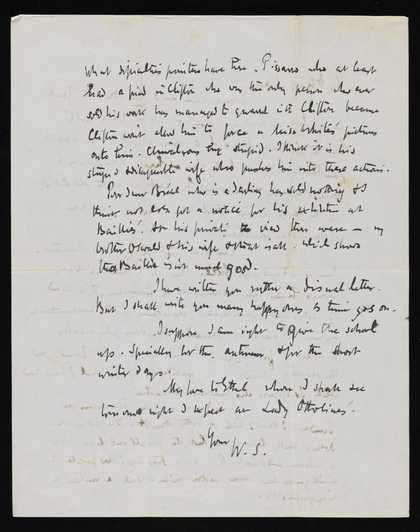 What difficulties painters have here. Pissarro who at least
had a friend in Clifton who was the only person who ever
sold his work has managed to quarrel with Clifton because
Clifton won't allow him to force a Miss pictures
onto him. stupid. I think it is his
stupid & wife who pushes him into these actions.
Poor dear who is a darling has sold nothing & I
think not even got a notice for his exhibition at
Baillie's. At his private view there were — my
brother Oswald & his wife & that is all. Which shows
that Baillie isn't much good.
I have written you rather a dismal letter.
But I shall write you many happy ones as time goes on.
I suppose I am right to give the school
up. Specially for the autumn & for the short
winter days.
My love to Ethel whom I shall see
tomorrow night I expect at Lady Ottoline's.
Your
W. S.